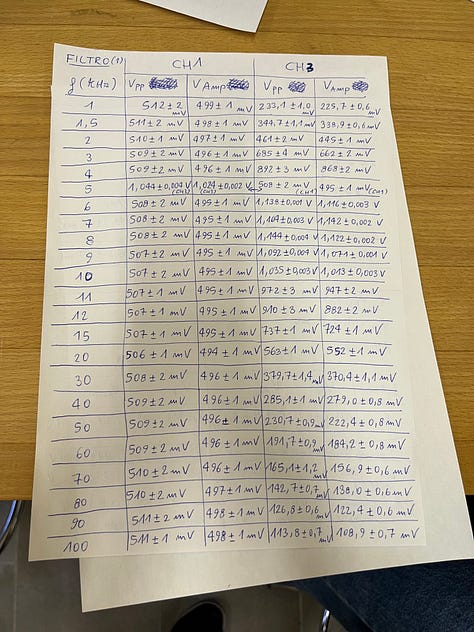 FILTRO(1) CH1 CH3
f (KHz) Vpp VAmp Vpp VAmp
1 512 ± 2 mV 499 ± 1 mV 233,1 ± 1,0 mV 225,7 ± 0,6 mV
1,5 511 ± 2 mV 498 ± 1 mV 344,7 ± 1,1 mV 338,9 ± 0,6 mV
2 510 ± 1 mV 497 ± 1 mV 461 ± 2 mV 445 ± 1 mV
3 509 ± 2 mV 496 ± 1 mV 685 ± 4 mV 662 ± 2 mV
4 509 ± 2 mV 496 ± 1 mV 892 ± 3 mV 868 ± 2 mV
5 1,044 ± 0,004 V (CH3) 1,024 ± 0,002 V (CH3) 508 ± 2 mV (CH1) 495 ± 1 mV (CH1)
6 508 ± 2 mV 495 ± 1 mV 1,138 ± 0,001 V 1,116 ± 0,003 V
7 508 ± 2 mV 495 ± 1 mV 1,164 ± 0,003 V 1,142 ± 0,002 V
8 508 ± 2 mV 495 ± 1 mV 1,144 ± 0,004 V 1,122 ± 0,002 V
9 507 ± 2 mV 495 ± 1 mV 1,092 ± 0,004 V 1,071 ± 0,001 V
10 507 ± 2 mV 495 ± 1 mV 1,035 ± 0,003 V 1,013 ± 0,003 V
11 507 ± 1 mV 495 ± 1 mV 972 ± 3 mV 947 ± 2 mV
12 507 ± 1 mV 495 ± 1 mV 910 ± 3 mV 882 ± 2 mV
15 507 ± 1 mV 495 ± 1 mV 737 ± 1 mV 724 ± 1 mV
20 506 ± 1 mV 494 ± 1 mV 563 ± 1 mV 552 ± 1 mV
30 508 ± 2 mV 496 ± 1 mV 379,7 ± 1,4 mV 370,4 ± 1,1 mV
40 509 ± 2 mV 496 ± 1 mV 285,1 ± 1 mV 279,0 ± 0,8 mV
50 509 ± 2 mV 496 ± 1 mV 230,7 ± 0,9 mV 222,4 ± 0,8 mV
60 509 ± 2 mV 496 ± 1 mV 191,7 ± 0,9 mV 184,2 ± 0,8 mV
70 510 ± 2 mV 496 ± 1 mV 165,1 ± 1,2 mV 156,9 ± 0,6 mV
80 510 ± 2 mV 497 ± 1 mV 142,7 ± 0,7 mV 138,0 ± 0,6 mV
90 511 ± 2 mV 498 ± 1 mV 126,8 ± 0,6 mV 122,4 ± 0,6 mV
100 511 ± 1 mV 498 ± 1 mV 113,8 ± 0,7 mV 108,9 ± 0,7 mV